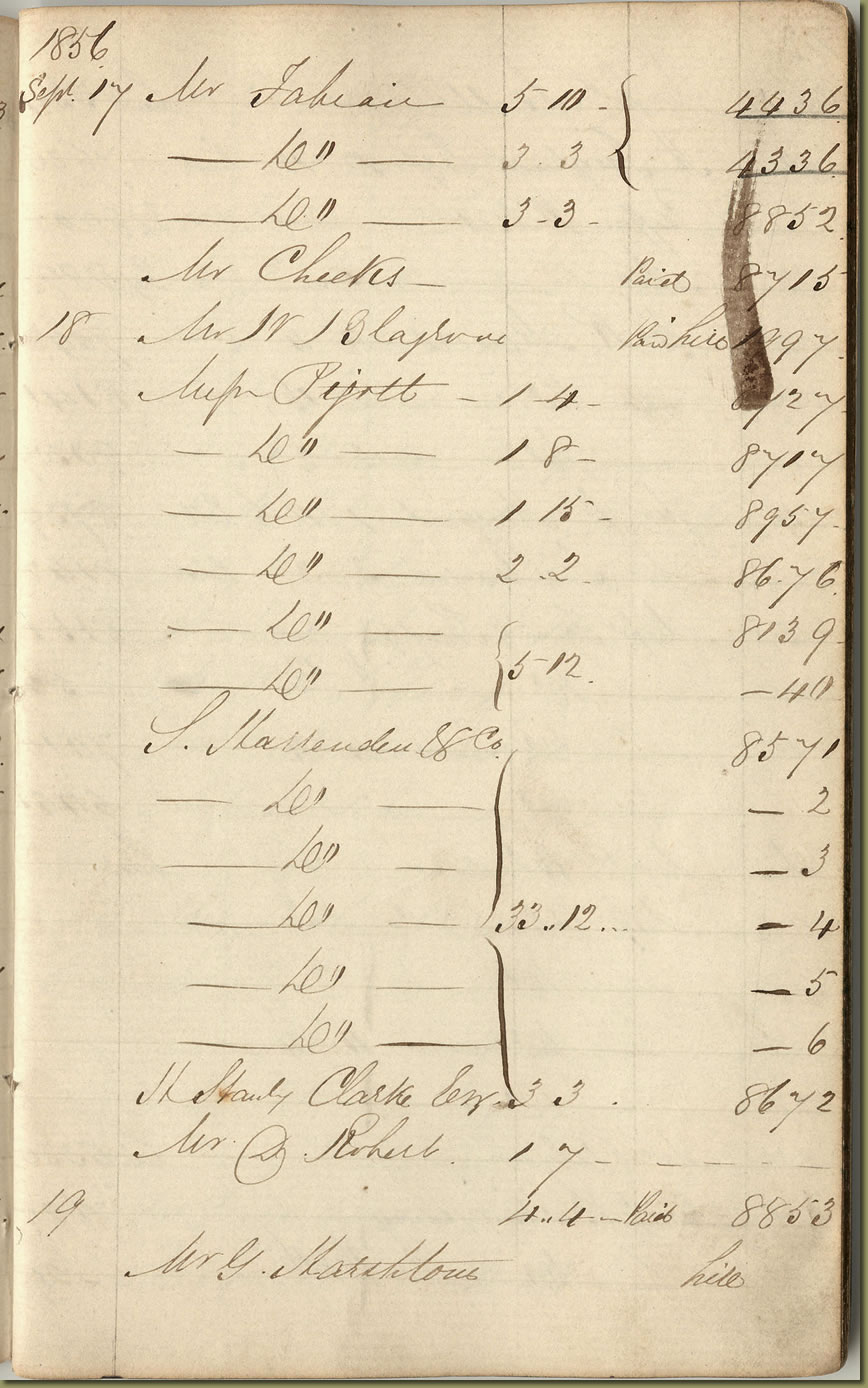 1856
Sept. 17 Mr Fabian 5 10 - 4436
— Do" — 3. 3 4336
— Do" — 3-3- 8852
Mr Cheeks — Paid 8715
18 Mr W J Blagrove Paid hire 97
Messrs Pigott - 1-4- 8727
— Do" — 1 8- 8717
— Do" — 1 15- 8957
— Do" — 2.2. 8676
— Do" — 8139
— Do" — 5-12. -40
S. & Co. 8571
— Do" — - 2
— Do" — - 3
— Do" — 33..12... - 4
— Do" — - 5
— Do" — - 6
H Stanly Clarke Esq. 3 3 . 8672
Mr D Robert. 1 7-
19 4..4 - Paid 8853
Mr G. hire